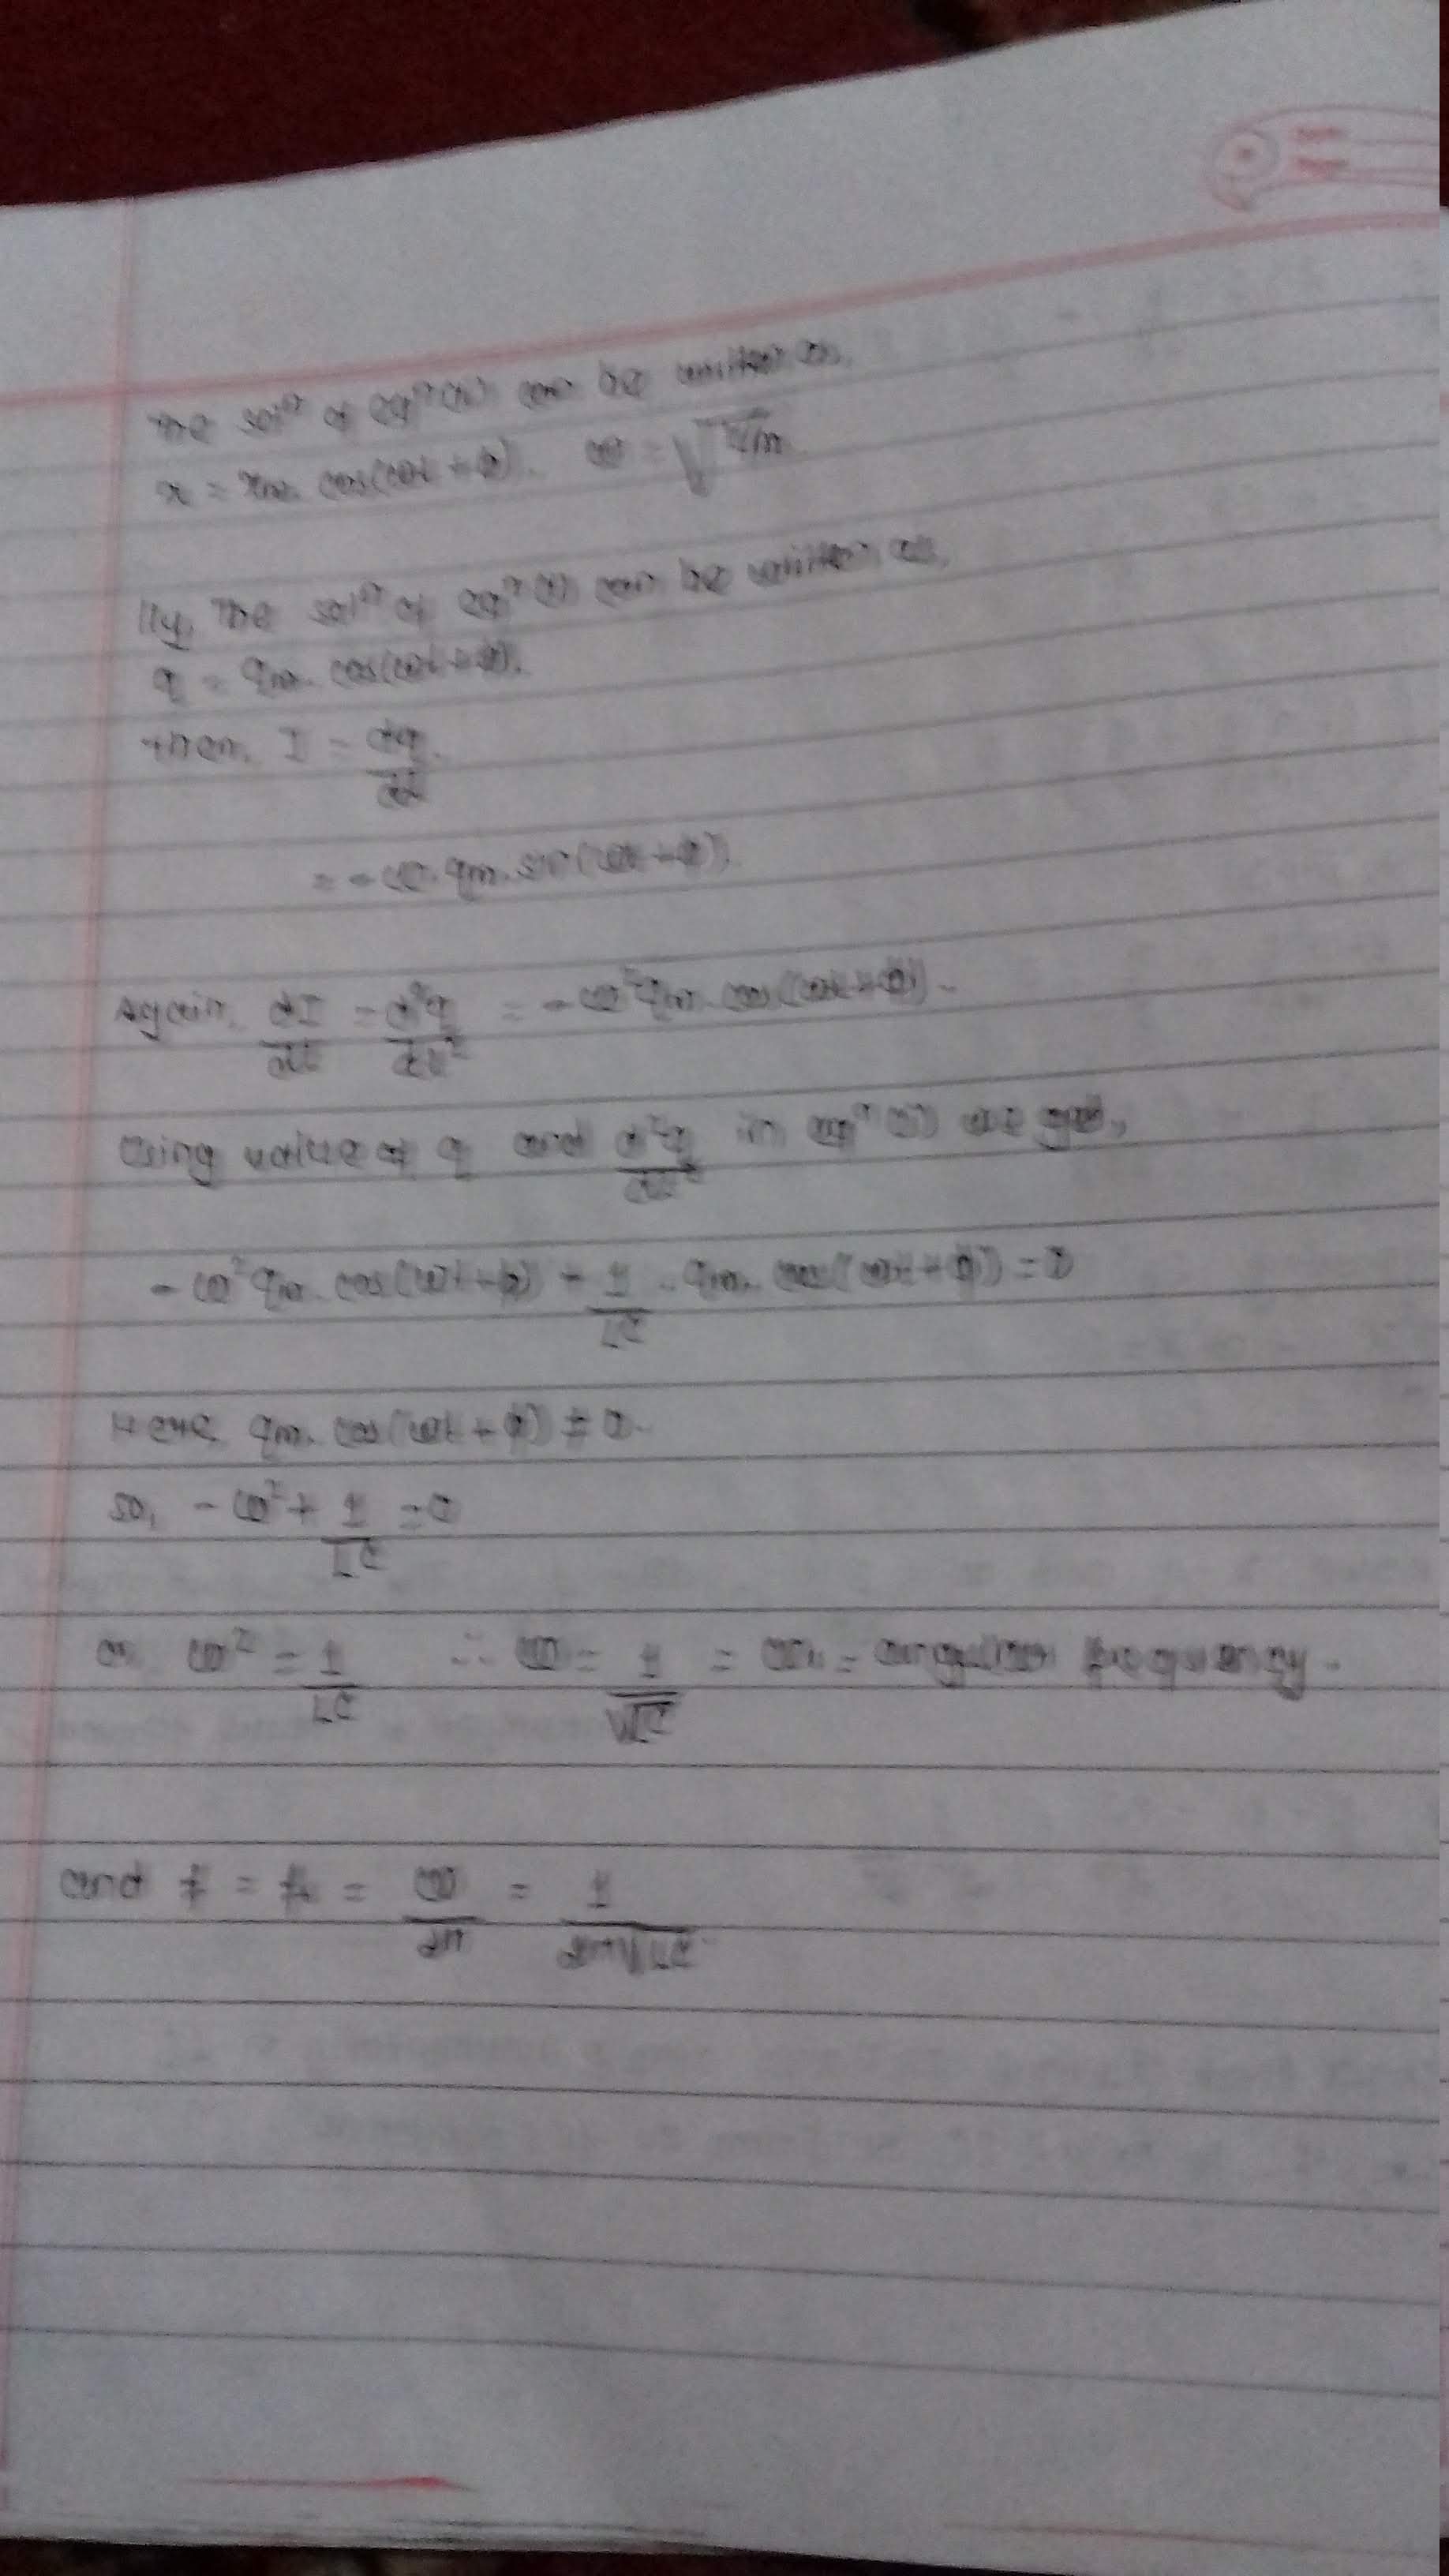 The solⁿ of eqⁿ can be written as,
x = xm. cos(ωt + ϕ). ω = √k/m
lly, The solⁿ of eqⁿ can be written as,
q = qm. cos(ωt + ϕ).
then, I = dq/dt
= - ω. qm. sin(ωt + ϕ).
Again, dI/dt = d²q/dt² = - ω² qm. cos(ωt + ϕ).
Using value of q and d²q/dt² in eqⁿ we get,
- ω² qm. cos(ωt + ϕ) + 1/LC . qm. cos(ωt + ϕ) = 0
Here qm. cos(ωt + ϕ) ≠ 0.
so, - ω² + 1/LC = 0
or ω² = 1/LC ∴ ω = 1/√LC = = angular frequency.
and f = = ω/2π = 1/2π√LC